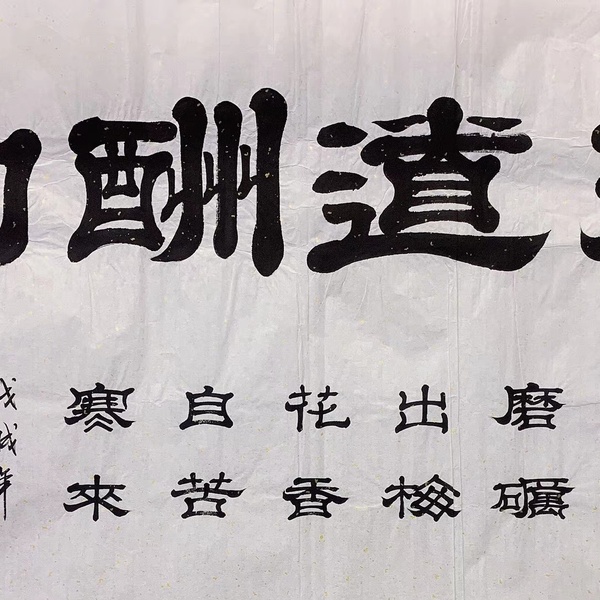 道酬
磨礪
出梅
花香
自苦
寒來
戊戌年